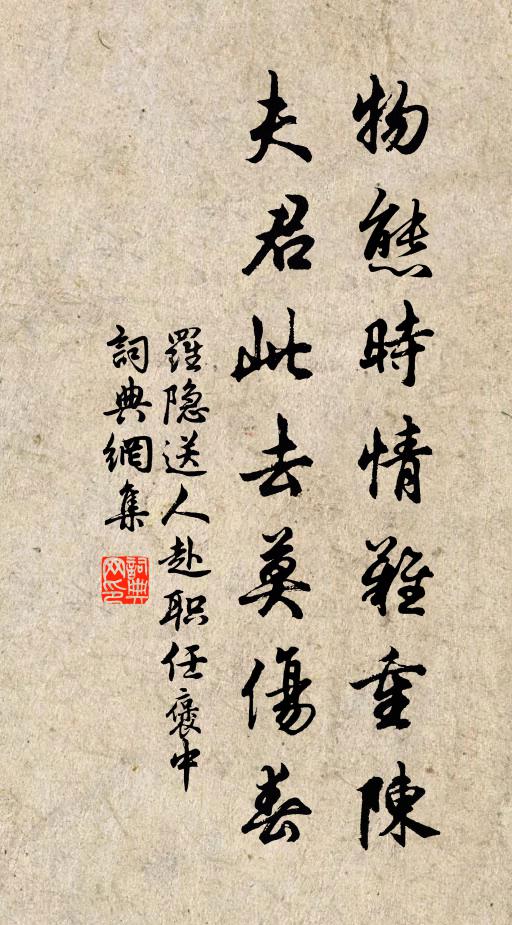 物態時情難重陳
夫君此去莫傷春
羅隐送人赴职任褒中
詞典網集
詞典网印